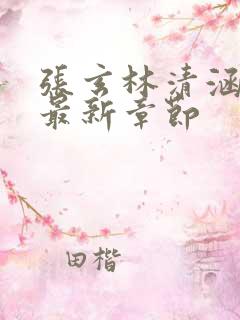 張玄林清涵
最新章節
田楷